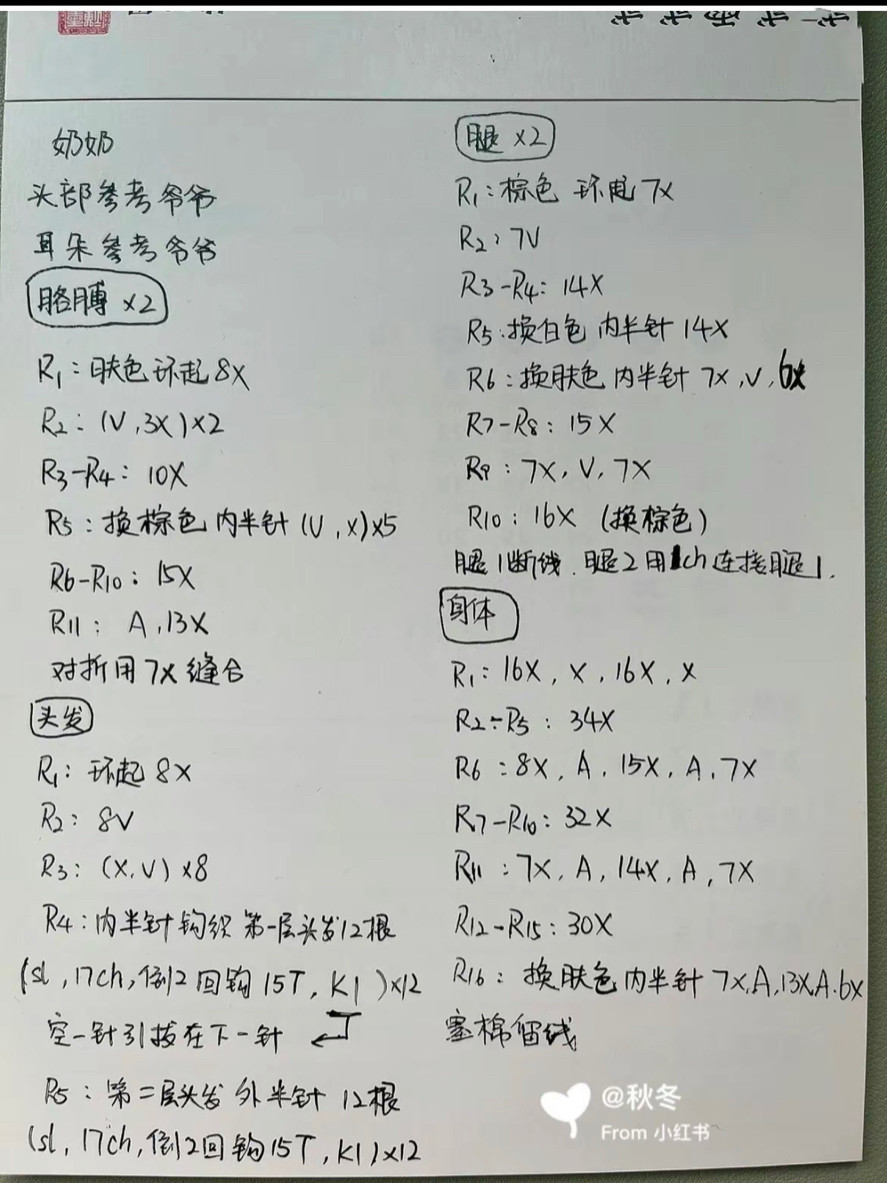 奶奶
头部参考爷爷
耳朵参考爷爷
胳膊 x2
R1：肤色环起8X
R2：(V,3X)x2
R3-R4：10X
R5：换棕色内半针(V,X)x5
R6-R10：15X
R11：A,13X
对折用7X缝合
头发
R1：环起8X
R2：8V
R3：(X,V)x8
R4：内半针钩织第一层头发12根
(sl,17ch,倒2回钩15T,K1)x12
空一针引拔在下一针
R5：第二层头发外半针12根
(sl,17ch,倒2回钩15T,K1)x12
腿 x2
R1：棕色 环起7X
R2：7V
R3-R4：14X
R5：换白色内半针14X
R6：换肤色内半针7X,V,6X
R7-R8：15X
R9：7X,V,7X
R10：16X (换棕色)
腿1断线.腿2用1ch连接腿1.
身体
R1：16X,X,16X,X
R2-R5：34X
R6：8X,A,15X,A,7X
R7-R10：32X
R11：7X,A,14X,A,7X
R12-R15：30X
R16：换肤色内半针7X,A,13X,A,6X
塞棉留线
@秋冬
From 小红书